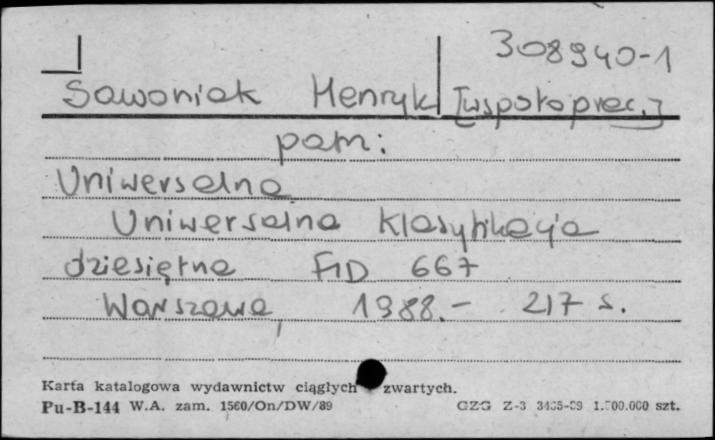 308940-1
Sawoniak Henryk [współoprac.]
patrz:
Uniwersalna
Uniwersalna Klasyfikacja
dziesiętna FID 667
Warszawa, 1988.- 217 s.
Karta katalogowa wydawnictw ciągłych zwartych.
Pu-B-144 W.A. zam. 1560/On/DW/89 CZG Z-3 1.500.000 szt.